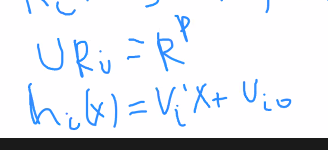 ∪Rᵢ = Rᵖ
hᵢ(x) = Vᵢ'X + Vᵢ₀